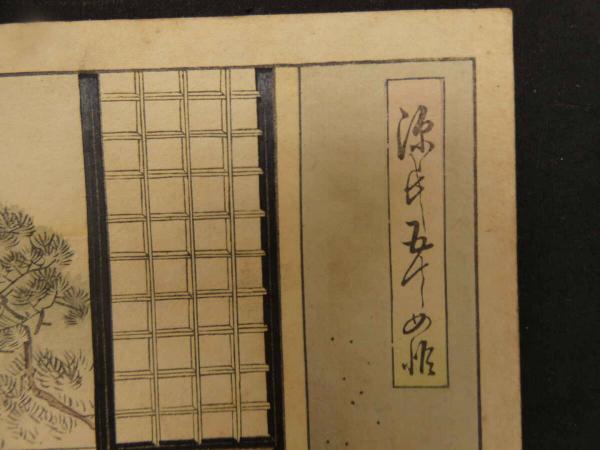 源氏五十四帖